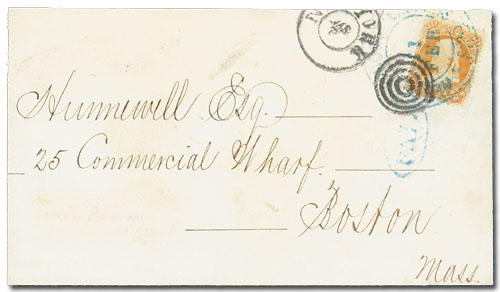 Hunnewell Esq.
25 Commercial Wharf.
Boston
Mass.